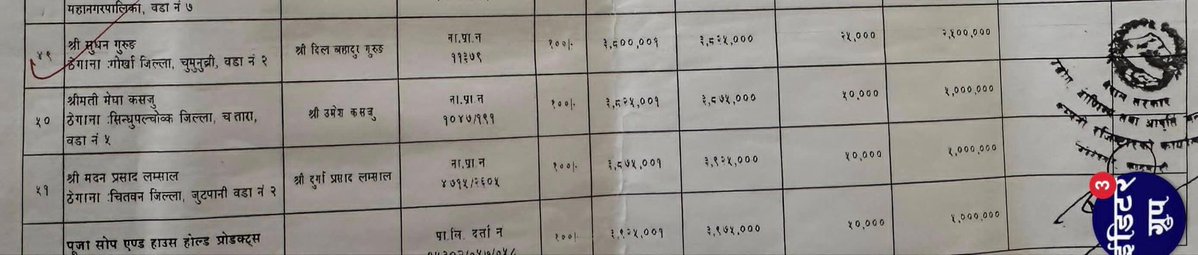 महानगरपालिका, वडा नं ७
४९ श्री सुधन गुरुङ श्री दिल बहादुर गुरुङ ना.प्रा.न १००/- ३,८००,००१ ३,८२५,००० २५,००० २,५००,०००
ठेगाना :गोर्खा जिल्ला, चुमुनुब्री, वडा नं २ ११३७९
श्रीमती मेघा कसजु ना.प्रा न
५० ठेगाना :सिन्धुपल्चोक जिल्ला, चतारा, श्री उमेश कसजु १०४७/१९१ १००/- ३,८२५,००१ ३,८७५,००० ५०,००० ५,०००,०००
वडा नं ५
५१ श्री मदन प्रसाद लम्साल श्री दुर्गा प्रसाद लम्साल ना.प्रा.न १००/- ३,८७५,००१ ३,९२५,००० ५०,००० ५,०००,०००
ठेगाना :चितवन जिल्ला, जुटपानी वडा नं २ ४७१५/२६०५
पूजा सोप एण्ड हाउस होल्ड प्रोडक्ट्स पा.वि. दर्ता न १००/- ३,९२५,००१ ३,९७५,००० ५०,००० ५,०००,०००
नेपाल सरकार
उद्योग, वाणिज्य तथा आपूर्ति
कम्पनी रजिष्ट्रारको कार्यालय
3
ईडिटर
ग्रुप